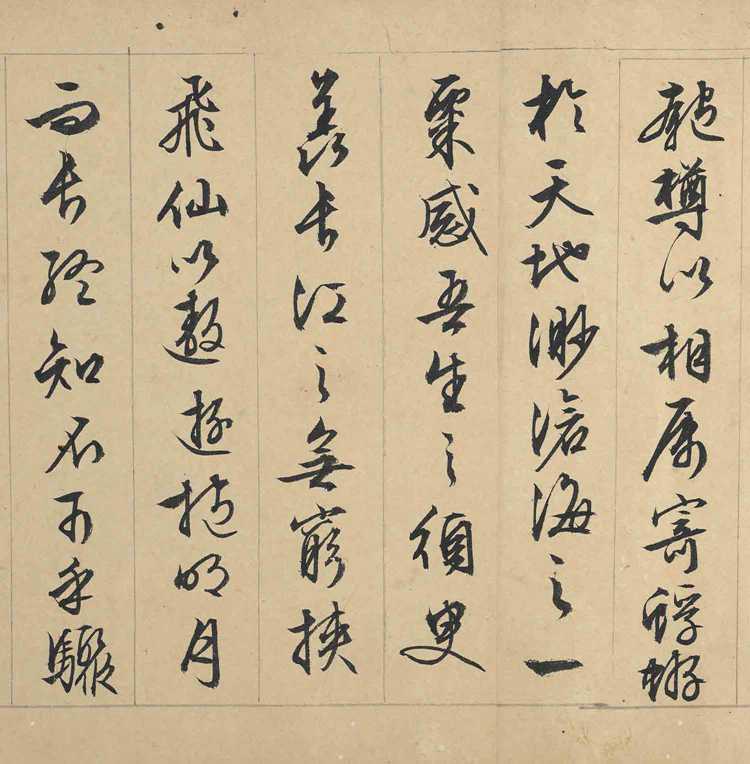 匏樽以相属寄蜉蝣
於天地渺滄海之一
粟感吾生之須臾
羨長江之無窮挾
飛仙以遨遊抱明月
而長終知不可乎驟